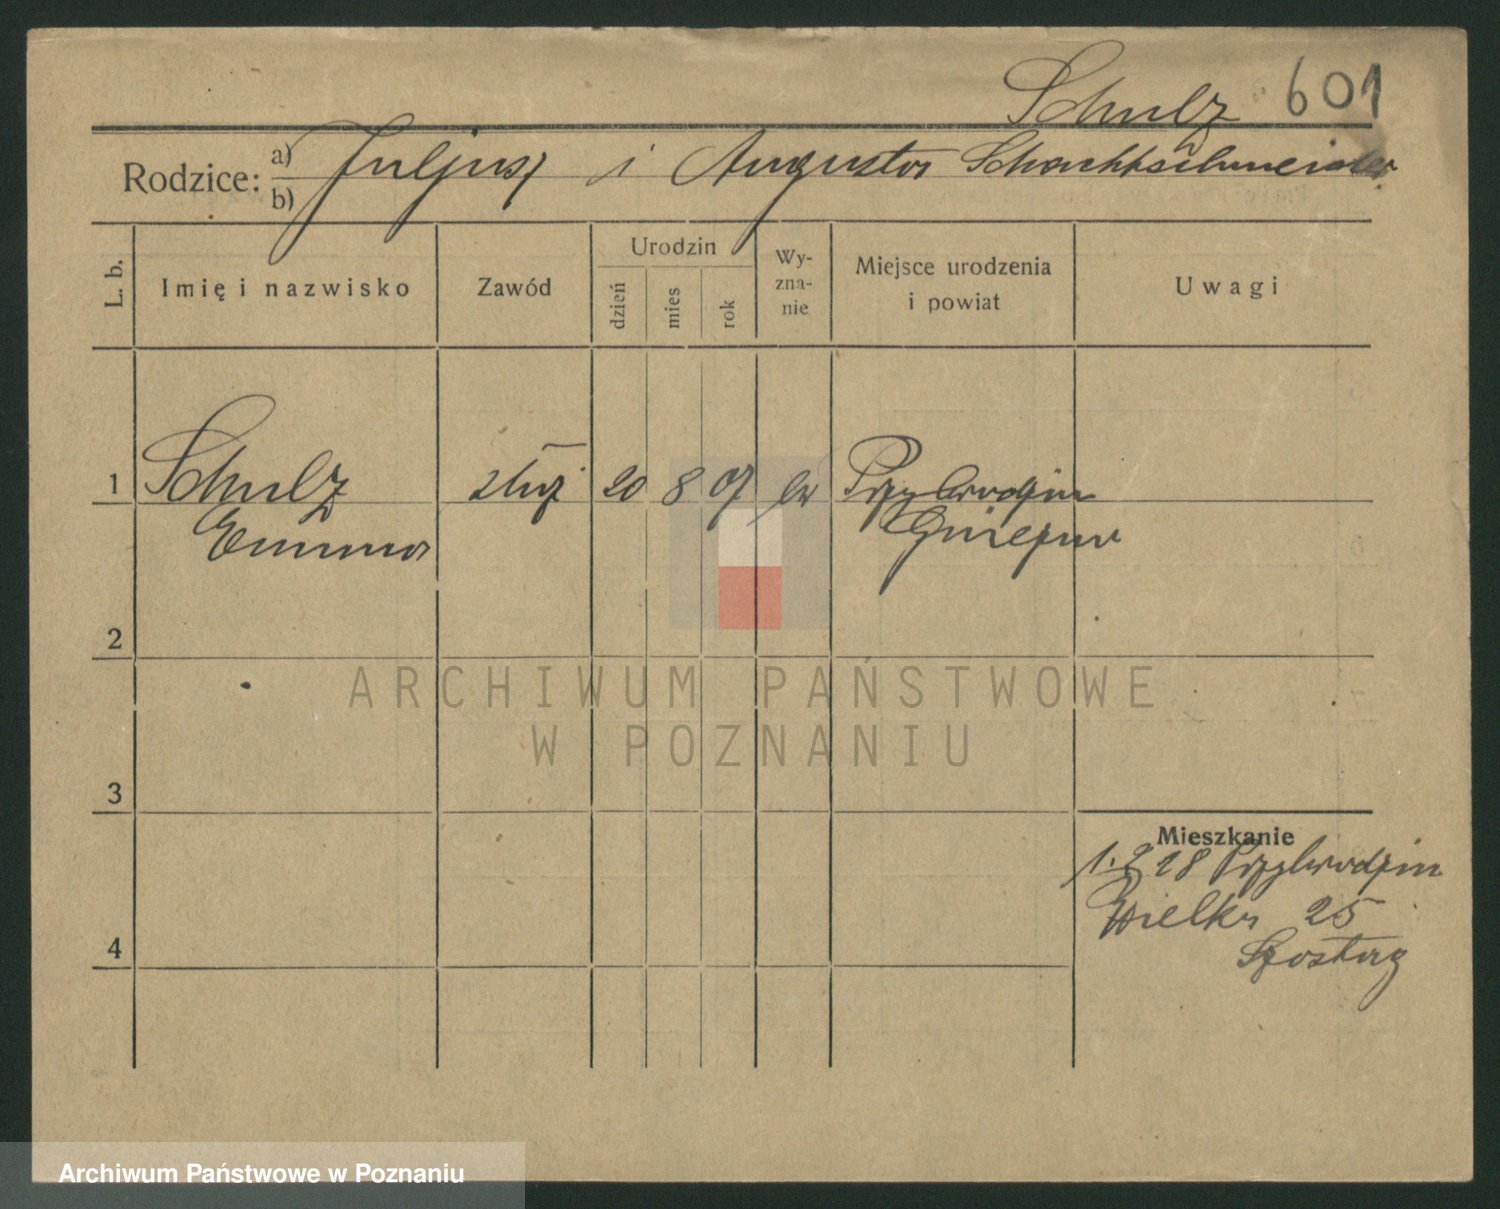 Schulz 601
Rodzice: a) b) Juljusz i Augusta Schachtschneider
L. b.
Imię i nazwisko
Zawód
Urodzin
dzień
mies
rok
Wy-
zna-
nie
Miejsce urodzenia
i powiat
Uwagi
1 Schulz służ 20 8 07 ew Przybrodzin
Emma Gniezno
2
ARCHIWUM PAŃSTWOWE
W POZNANIU
3
Mieszkanie
1. 2 28 Przybrodzin
Wielka 25
4
Archiwum Państwowe w Poznaniu